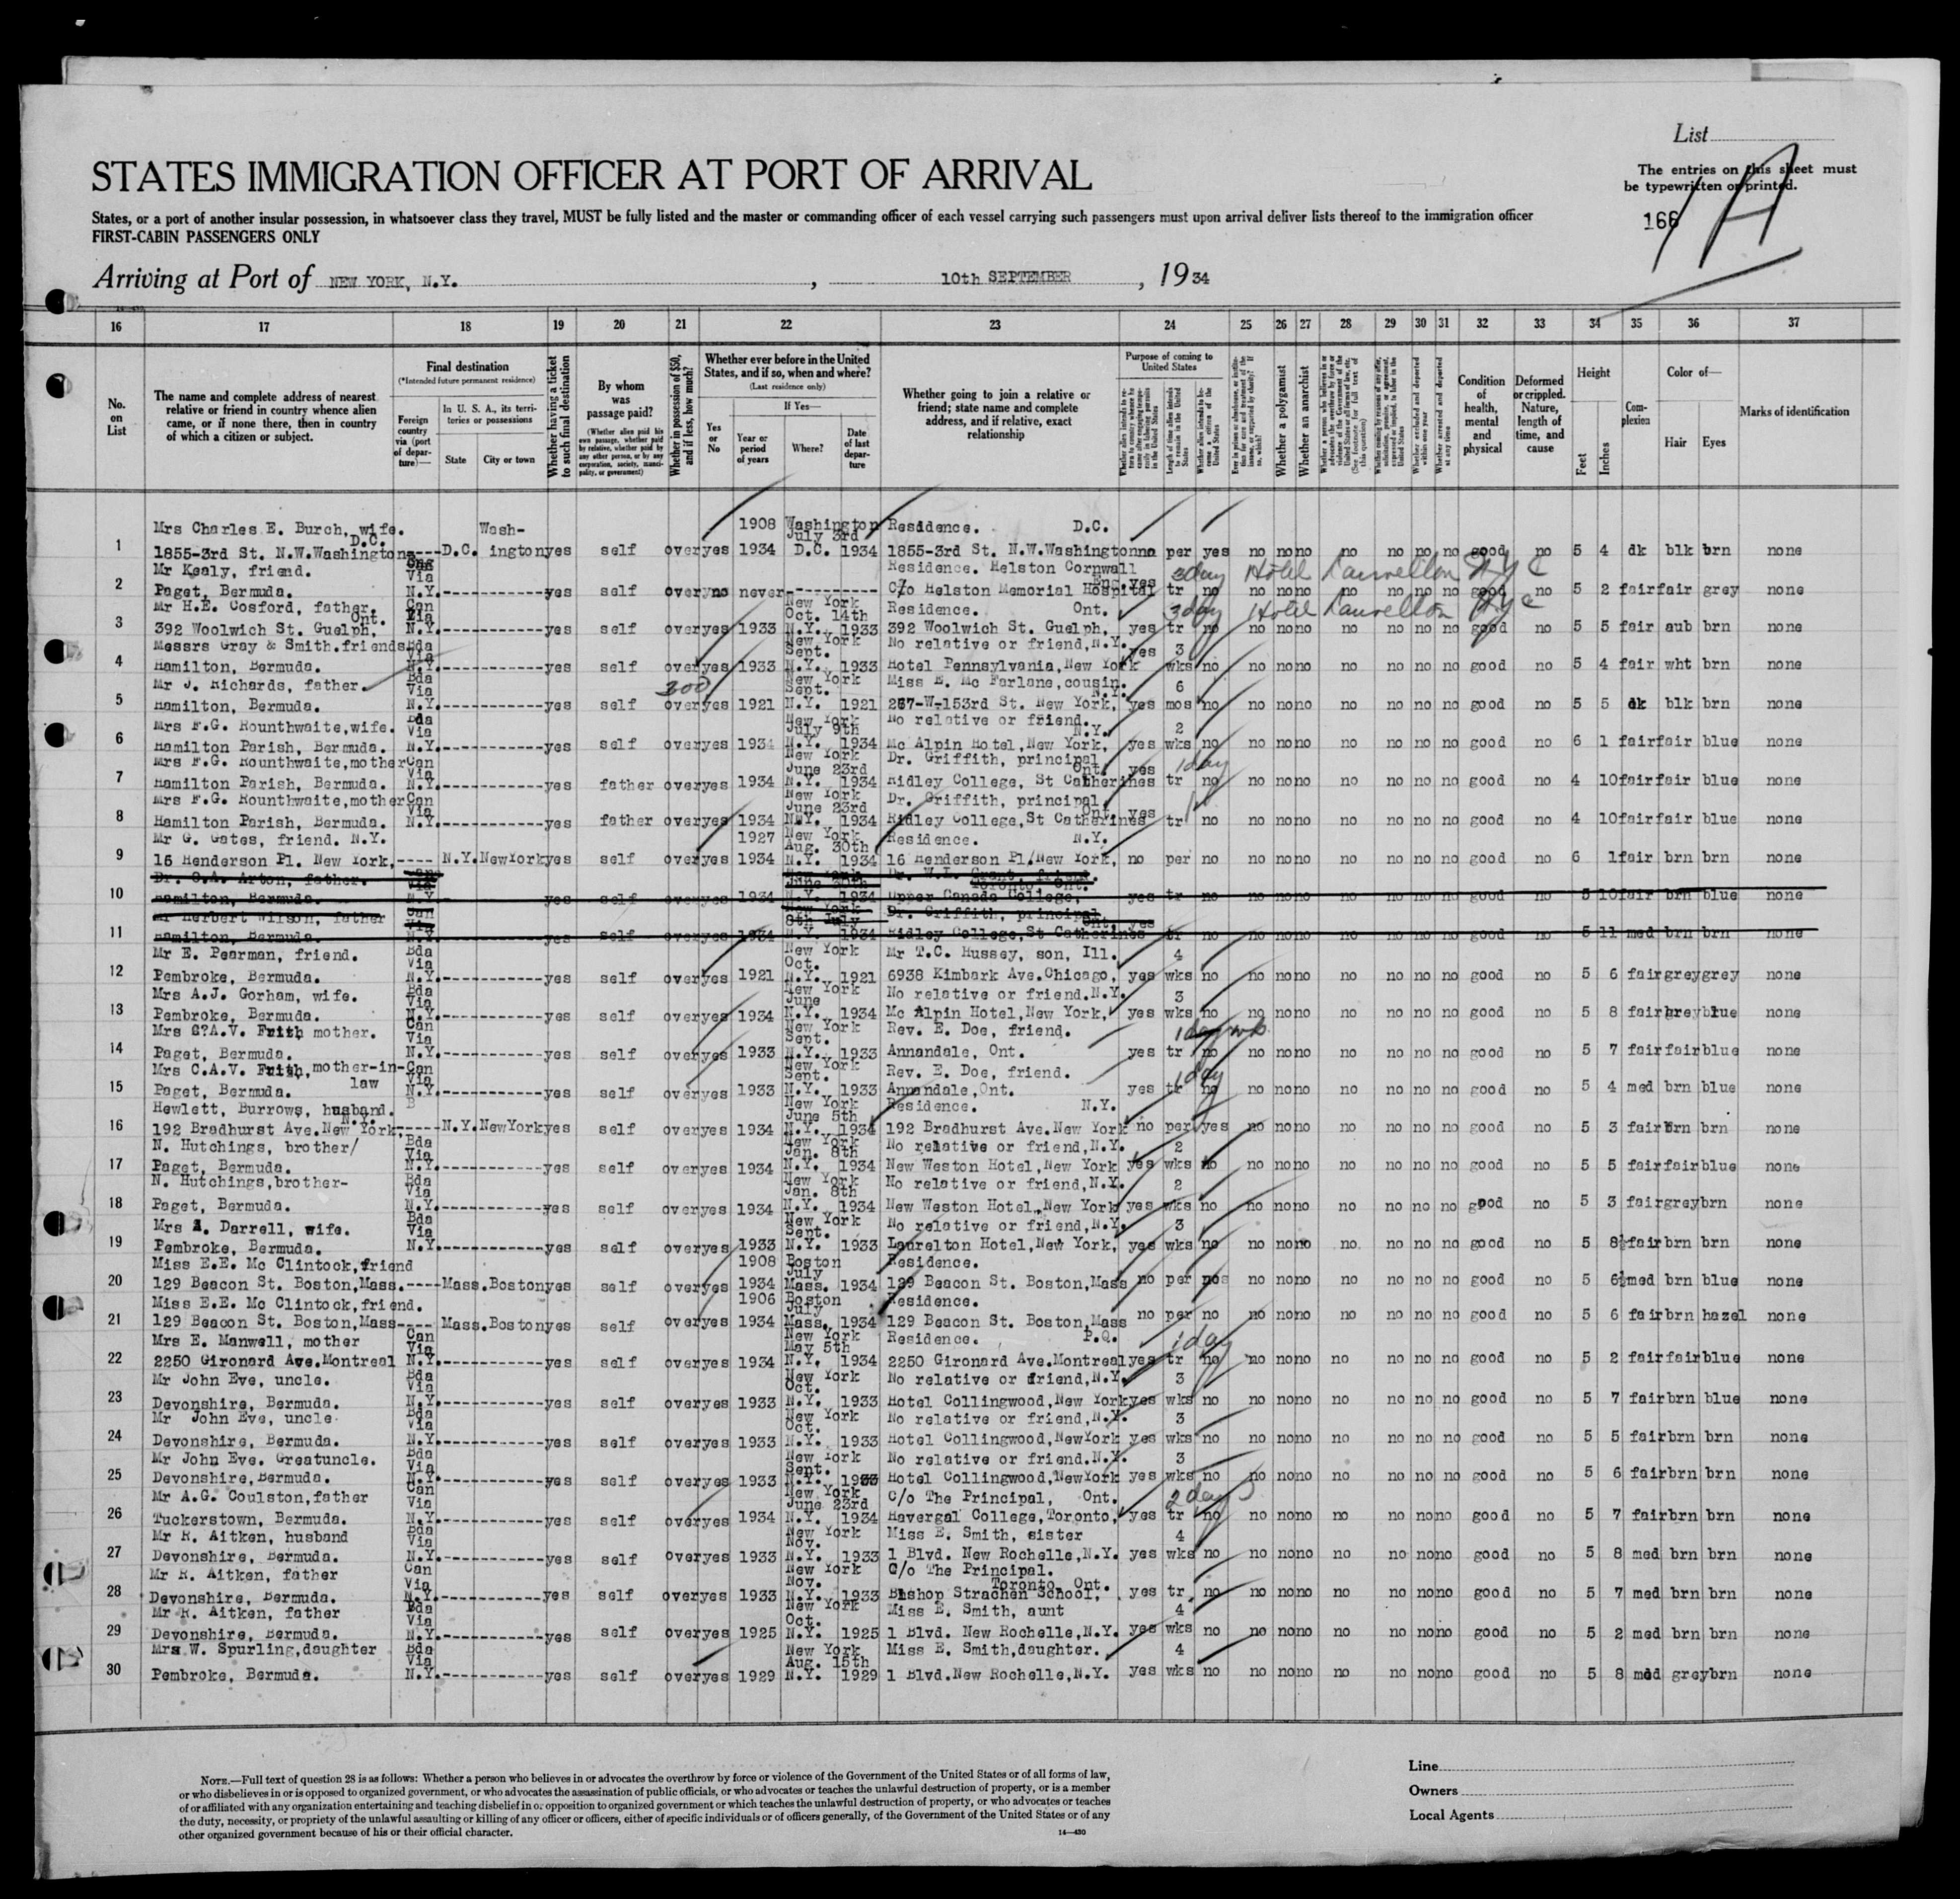 List
STATES IMMIGRATION OFFICER AT PORT OF ARRIVAL
The entries on this sheet must
be typewritten or printed.
States, or a port of another insular possession, in whatsoever class they travel, MUST be fully listed and the master or commanding officer of each vessel carrying such passengers must upon arrival deliver lists thereof to the immigration officer
166
FIRST-CABIN PASSENGERS ONLY
Arriving at Port of NEW YORK, N.Y. , 10th SEPTEMBER , 1934
16 17 18 19 20 21 22 23 24 25 26 27 28 29 30 31 32 33 34 35 36 37
No. on List
The name and complete address of nearest relative or friend in country whence alien came, or if none there, then in country of which a citizen or subject.
Final destination
(*Intended future permanent residence)
Foreign country via (port of departure)—
In U. S. A., its territories or possessions
State
City or town
Whether having a ticket to such final destination
By whom was passage paid?
(Whether alien paid his own passage, whether paid by relative, whether paid by any other person, or by any corporation, society, municipality, or government)
Whether in possession of $50, and if less, how much?
Whether ever before in the United States, and if so, when and where?
(Last residence only)
Yes or No
If Yes—
Year or period of years
Where?
Date of last departure
Whether going to join a relative or friend; state name and complete address, and if relative, exact relationship
Purpose of coming to United States
Length of time alien intends to remain in the United States
Whether a polygamist
Whether an anarchist
Condition of health, mental and physical
Deformed or crippled. Nature, length of time, and cause
Height
Feet
Inches
Complexion
Color of—
Hair
Eyes
Marks of identification
Mrs Charles E. Burch, wife. Wash- 1908 Washington Residence. D.C.
D.C. July 3rd
1 1855-3rd St. N.W.Washington----D.C. ington yes self over yes 1934 D.C. 1934 1855-3rd St. N.W.Washington no per yes no no no no no no no good no 5 4 dk blk brn none
Mr Kealy, friend. Via Residence. Helston Cornwall 3day Hotel Laurelton N Y C
2 Paget, Bermuda. N.Y.-----------yes self over no never----------- C/o Helston Memorial Hospital Eng. yes tr no no no no no no no no good no 5 2 fair fair grey none
Mr H.E. Cosford, father. Can Via New York Oct. 14th Residence. Ont. 3day Hotel Laurelton N Y C
3 392 Woolwich St. Guelph, Ont. N.Y.-----------yes self over yes 1933 N.Y. 1933 392 Woolwich St. Guelph, yes tr no no no no no no no no good no 5 5 fair aub brn none
Messrs Gray & Smith.friends Bda Via New York Sept. No relative or friend,N.Y. 3
4 Hamilton, Bermuda. N.Y.-----------yes self over yes 1933 N.Y. 1933 Hotel Pennsylvania,New York yes wks no no no no no no no no good no 5 4 fair wht brn none
Mr J. Richards, father. Bda Via 300 New York Sept. Miss E. Mc Farlane,cousin. N.Y. 6
5 Hamilton, Bermuda. N.Y.-----------yes self over yes 1921 N.Y. 1921 267-W-153rd St. New York, yes mos no no no no no no no no good no 5 5 dk blk brn none
Mrs F.G. Rounthwaite,wife. Bda Via New York July 9th No relative or friend. N.Y. 2
6 Hamilton Parish, Bermuda. N.Y.-----------yes self over yes 1934 N.Y. 1934 Mc Alpin Hotel,New York, yes wks no no no no no no no no good no 6 1 fair fair blue none
Mrs F.G. Rounthwaite,mother Can Via New York June 23rd Dr. Griffith, principal Ont. 1day
7 Hamilton Parish, Bermuda. N.Y.-----------yes father over yes 1934 N.Y. 1934 Ridley College, St Catherines yes tr no no no no no no no no good no 4 10 fair fair blue none
Mrs F.G. Rounthwaite,mother Can Via New York June 23rd Dr. Griffith, principal. Ont.
8 Hamilton Parish, Bermuda. N.Y.-----------yes father over yes 1934 N.Y. 1934 Ridley College,St Catherines yes tr no no no no no no no no good no 4 10 fair fair blue none
Mr G. Gates, friend. N.Y. 1927 New York Aug. 30th Residence. N.Y.
9 16 Henderson Pl. New York,---- N.Y. NewYork yes self over yes 1934 N.Y. 1934 16 Henderson Pl/New York, no per no no no no no no no no good no 6 1 fair brn brn none
Dr. C.A. Arton, father. Can Via New York June Dr. W.L. Grant, friend. Toronto Ont.
10 Hamilton, Bermuda. N.Y. yes self over yes 1934 N.Y. 1934 Upper Canada College, yes tr no no no no no no no no good no 5 10 fair brn blue none
Mr Herbert Wilson, father Can Via New York 8th July Dr. Griffith, principal Ont. yes
11 Hamilton, Bermuda. N.Y. yes self over yes 1934 N.Y. 1934 Ridley College,St Catherines tr no no no no no no no no good no 5 11 med brn brn none
Mr E. Pearman, friend. Bda Via New York Oct. Mr T.C. Hussey, son, Ill. 4
12 Pembroke, Bermuda. N.Y.-----------yes self over yes 1921 N.Y. 1921 6938 Kimbark Ave.Chicago, yes wks no no no no no no no no good no 5 6 fair grey grey none
Mrs A.J. Gorham, wife. Bda Via New York June No relative or friend.N.Y. 3
13 Pembroke, Bermuda. N.Y.-----------yes self over yes 1934 N.Y. 1934 Mc Alpin Hotel,New York, yes wks no no no no no no no no good no 5 8 fair grey blue none
Mrs C?A.V. Frith mother. Can Via New York Sept. Rev. E. Doe, friend. 1day
14 Paget, Bermuda. N.Y.-----------yes self over yes 1933 N.Y. 1933 Annandale, Ont. yes tr no no no no no no no no good no 5 7 fair fair blue none
Mrs C.A.V. Frith,mother-in-law Can Via New York Sept. Rev. E. Doe, friend. 1day
15 Paget, Bermuda. N.Y.-----------yes self over yes 1933 N.Y. 1933 Annandale,Ont. yes tr no no no no no no no no good no 5 4 med brn blue none
Hewlett, Burrows, husband. B New York June 5th Residence. N.Y.
16 192 Bradhurst Ave.New York, N.Y.-----N.Y. NewYork yes self over yes 1934 N.Y. 1934 192 Bradhurst Ave.New York no per yes no no no no no no no good no 5 3 fair brn brn none
N. Hutchings, brother/ Bda Via New York Jan. 8th No relative or friend,N.Y. 2
17 Paget, Bermuda. N.Y.-----------yes self over yes 1934 N.Y. 1934 New Weston Hotel,New York yes wks no no no no no no no no good no 5 5 fair fair blue none
N. Hutchings,brother- Bda Via New York Jan. 8th No relative or friend,N.Y. 2
18 Paget, Bermuda. N.Y.-----------yes self over yes 1934 N.Y. 1934 New Weston Hotel,New York yes wks no no no no no no no no good no 5 3 fair grey brn none
Mrs A. Darrell, wife. Bda Via New York Sept. No relative or friend,N.Y. 3
19 Pembroke, Bermuda. N.Y.-----------yes self over yes 1933 N.Y. 1933 Laurelton Hotel,New York, yes wks no no no no no no no no good no 5 8½ fair brn brn none
Miss E.E. Mc Clintock,friend 1908 Boston July Residence.
20 129 Beacon St. Boston,Mass.----Mass.Boston yes self over yes 1934 Mass. 1934 129 Beacon St. Boston,Mass no per no no no no no no no no good no 5 6½ med brn blue none
Miss E.E. Mc Clintock,friend. 1906 Boston July Residence.
21 129 Beacon St. Boston,Mass---- Mass.Boston yes self over yes 1934 Mass. 1934 129 Beacon St. Boston,Mass no per no no no no no no no no good no 5 6 fair brn hazel none
Mrs E. Manwell, mother Can Via New York May 5th Residence. P.Q. 1day
22 2250 Gironard Ave.Montreal N.Y.-----------yes self over yes 1934 N.Y. 1934 2250 Gironard Ave.Montreal yes tr no no no no no no no no good no 5 2 fair fair blue none
Mr John Eve, uncle. Bda Via New York Oct. No relative or friend,N.Y. 3
23 Devonshire, Bermuda. N.Y.-----------yes self over yes 1933 N.Y. 1933 Hotel Collingwood,New York yes wks no no no no no no no no good no 5 7 fair brn blue none
Mr John Eve, uncle. Bda Via New York Oct. No relative or friend,N.Y. 3
24 Devonshire, Bermuda. N.Y.-----------yes self over yes 1933 N.Y. 1933 Hotel Collingwood,NewYork yes wks no no no no no no no no good no 5 5 fair brn brn none
Mr John Eve. Greatuncle. Bda Via New York Sept. No relative or friend.N.Y. 3
25 Devonshire,Bermuda. N.Y.-----------yes self over yes 1933 N.Y. 1933 Hotel Collingwood,NewYork yes wks no no no no no no no no good no 5 6 fair brn brn none
Mr A.G. Coulston,father Can Via New York June 23rd C/o The Principal, Ont. 2days
26 Tuckerstown, Bermuda. N.Y.-----------yes self over yes 1934 N.Y. 1934 Havergal College,Toronto, yes tr no no no no no no no no good no 5 7 fair brn brn none
Mr R. Aitken, husband Bda Via New York Nov. Miss E. Smith, sister 4
27 Devonshire, Bermuda. N.Y.-----------yes self over yes 1933 N.Y. 1933 1 Blvd. New Rochelle,N.Y. yes wks no no no no no no no no good no 5 8 med brn brn none
Mr R. Aitken, father Can Via New York Nov. C/o The Principal. Toronto, Ont.
28 Devonshire, Bermuda. N.Y.-----------yes self over yes 1933 N.Y. 1933 Bishop Strachen School, yes tr no no no no no no no no good no 5 7 med brn brn none
Mr R. Aitken, father Bda Via New York Oct. Miss E. Smith, aunt 4
29 Devonshire, Bermuda. N.Y.-----------yes self over yes 1925 N.Y. 1925 1 Blvd. New Rochelle,N.Y. yes wks no no no no no no no no good no 5 2 med brn brn none
Mrs W. Spurling,daughter Bda Via New York Aug. 15th Miss E. Smith,daughter. 4
30 Pembroke, Bermuda. N.Y.-----------yes self over yes 1929 N.Y. 1929 1 Blvd.New Rochelle,N.Y. yes wks no no no no no no no no good no 5 8 med grey brn none
NOTE.—Full text of question 28 is as follows: Whether a person who believes in or advocates the overthrow by force or violence of the Government of the United States or of all forms of law,
or who disbelieves in or is opposed to organized government, or who advocates the assassination of public officials, or who advocates or teaches the unlawful destruction of property, or is a member
of or affiliated with any organization entertaining and teaching disbelief in or opposition to organized government or which teaches the unlawful destruction of property, or who advocates or teaches
the duty, necessity, or propriety of the unlawful assaulting or killing of any officer or officers, either of specific individuals or of officers generally, of the Government of the United States or of any
other organized government because of his or their official character.
14—430
Line
Owners
Local Agents